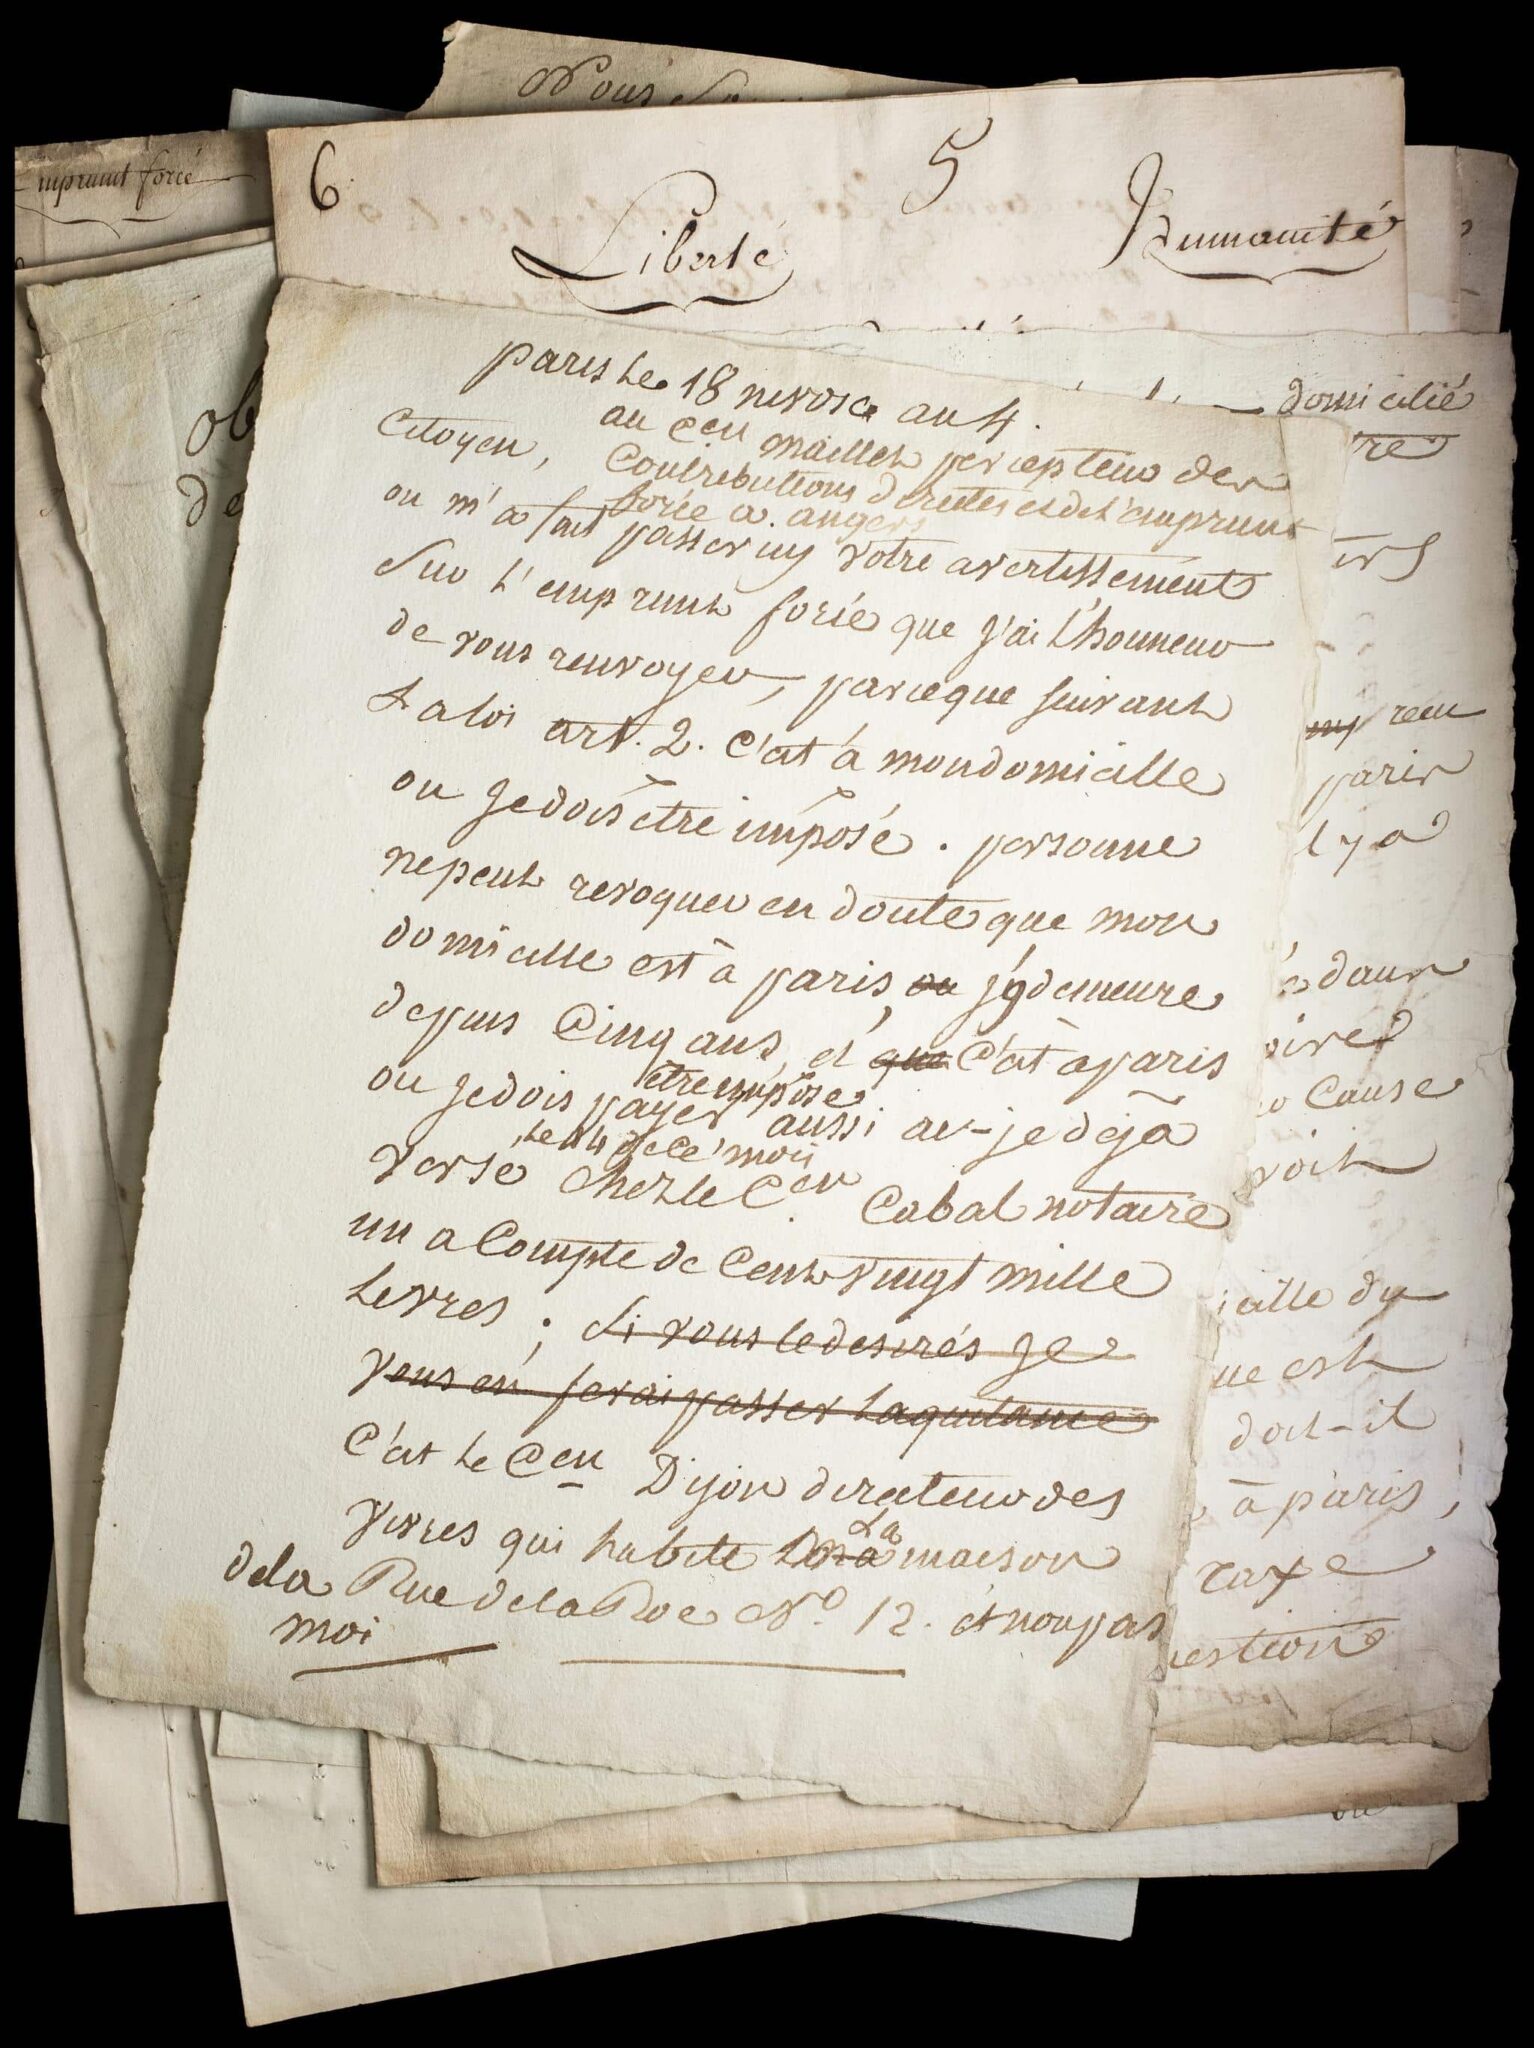 Nous
mprunt forcé
6
5
Liberté
Humanité
ob
de
paris Le 18 nivose an 4.
au Cen maillet percepteur des
Citoyen,
Contributions directes et de L'emprunt
forcé a. angers
on m'a fait passer icy votre avertissement
Sur L'emprunt forcé que j'ai L'honneur
de vous renvoyer, parceque suivant
La loi art. 2. C'est à mon domicille
ou Je dois être imposé. personne
ne peut revoquer en doute que mon
domicille est à paris, ou j'y demeure
depuis Cinq ans, et que C'est à paris
être imposé
ou je dois payer aussi ai-je déjà
Le 14 de ce mois
versé chez le Cen Cabal notaire
un a Compte de Cent vingt mille
Livres; Si vous le desirés Je
vous en ferai passer la quitance
C'est Le Cen Dijon directeur des
La
vivres qui habite ma maison
de la Rue de la Roe No. 12. et non pas
moi
domicilié
re
irs
reçu
paris
l y a
dans
oire
Cause
voit
icille du
ue est
doit-il
à paris,
taxe
uestion